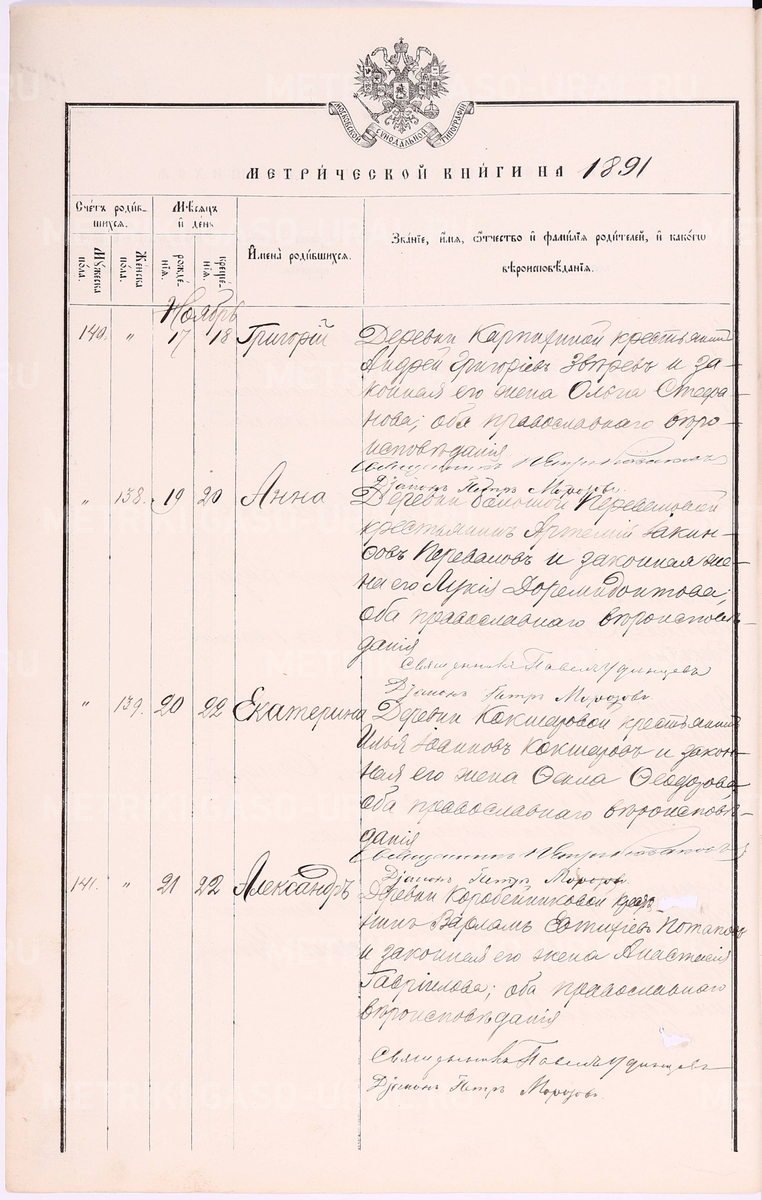 МОСКОВСКОЙ СѴНОДАЛЬНОЙ ТИПОГРАФІИ
МЕТРИЧЕСКОЙ КНИГИ НА 1891
Счетъ родив-
шихся.
Мужеска
пола.
Женска
пола.
Мѣсяцъ
и день
рожде-
нія.
креще-
нія.
Имена родившихся.
Званіе, имя, отчество и фамилія родителей, и какогѡ
вѣроисповѣданія.
Ноябрь
140. " 17 18 Григорій
Деревни крестьянинъ
Андрей Григоріевъ Звѣревъ и за-
конная его жена Ольга Стефа-
нова; оба православнаго вѣро-
исповѣданія
Священникъ
Діаконъ Петръ Морозовъ
" 138. 19 20 Анна
Деревни Переваловой
крестьянинъ Артемій Іакин-
ѳовъ Переваловъ и законная же-
на его Лукія Доремидонтова;
оба православнаго вѣроисповѣ-
данія
Священникъ Павелъ Удинцевъ
Діаконъ Петръ Морозовъ
" 139. 20 22 Екатерина
Деревни Кокшаровой крестьянинъ
Илья Іоанновъ Кокшаровъ и закон-
ная его жена Ѳекла Ѳеодорова
оба православнаго вѣроисповѣ-
данія
Священникъ
Діаконъ Петръ Морозовъ
141. " 21 22 Александръ
Деревни Коробейниковой крестья-
нинъ Варламъ Евтихіевъ Потаповъ
и законная его жена Анастасія
Гавріилова; оба православнаго
вѣроисповѣданія
Священникъ Павелъ Удинцевъ
Діаконъ Петръ Морозовъ